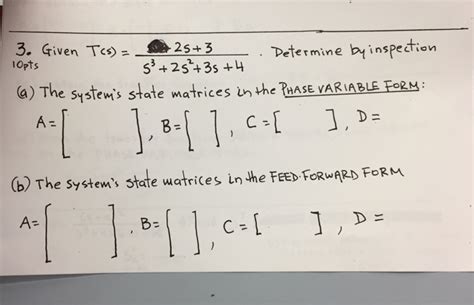 3. Given T(s) = 2s+3 / s³+2s²+3s+4 . Determine by inspection
10pts
(a) The system's state matrices in the PHASE VARIABLE FORM:
A=[ ], B=[ ], C=[ ], D=
(b) The system's state matrices in the FEED-FORWARD FORM
A=[ ], B=[ ], C=[ ], D=